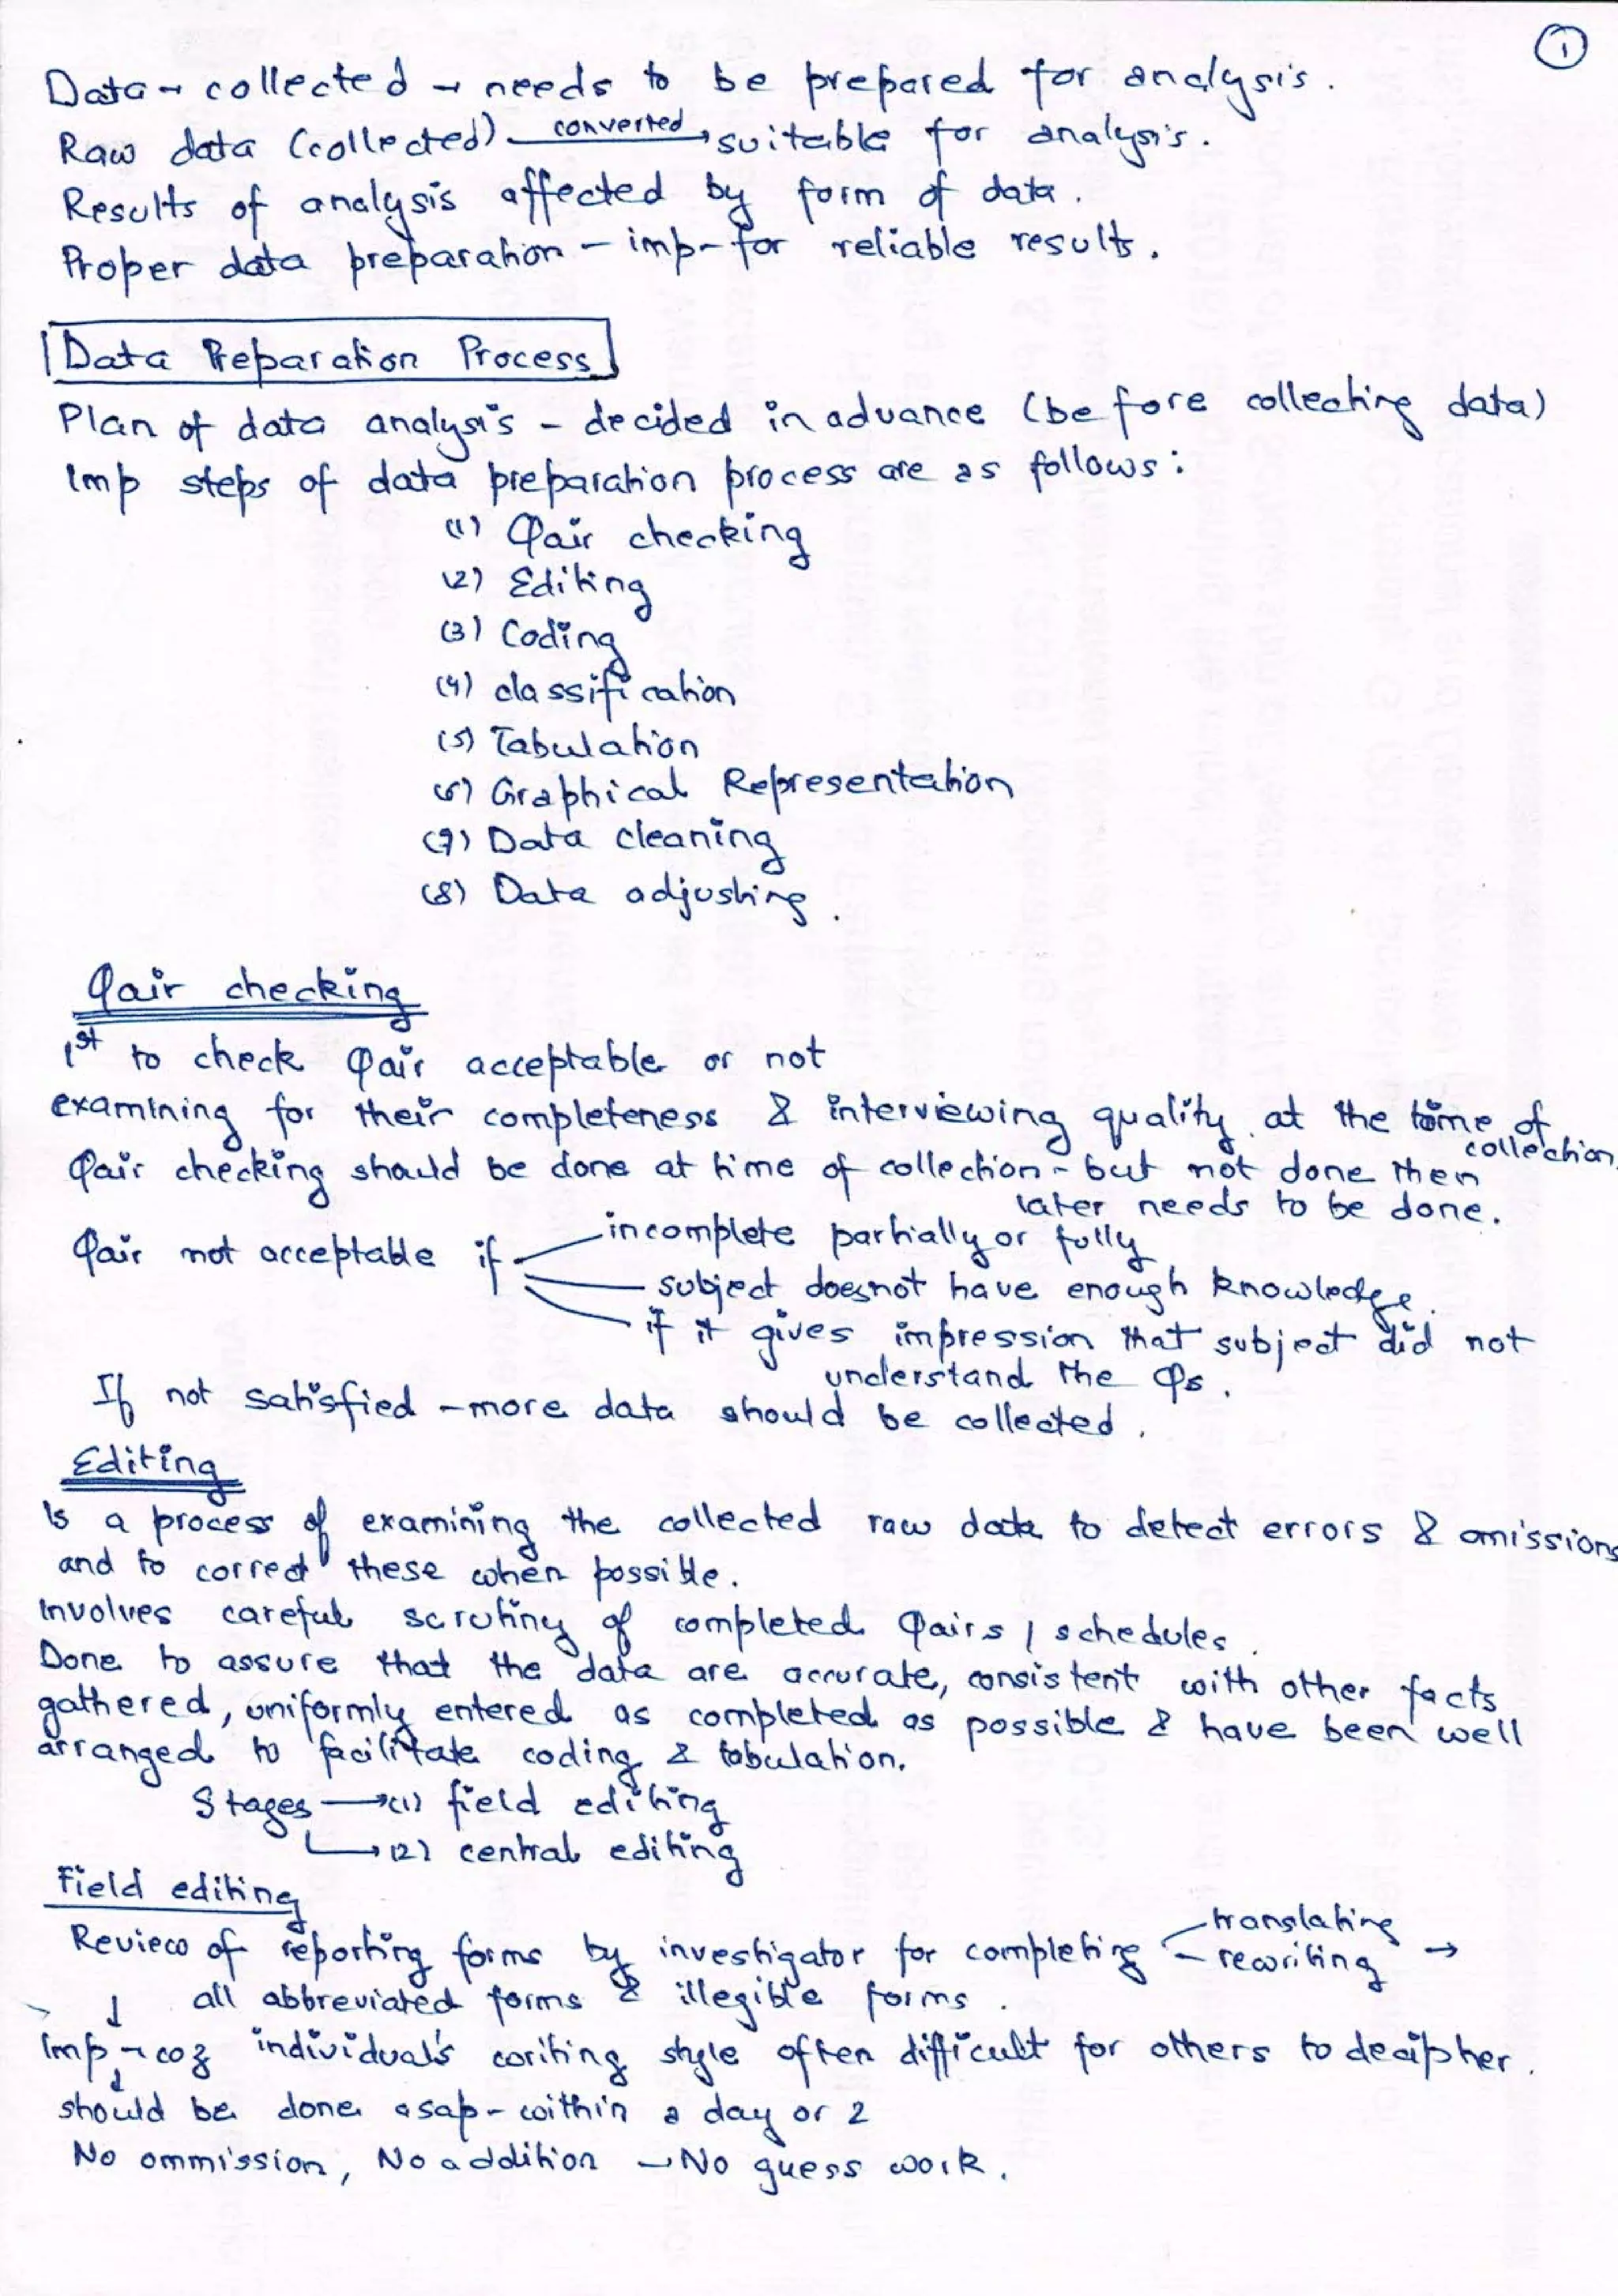 1
Data → collected → needs to be prepared for analysis.
Raw data (collected) converted → suitable for analysis.
Results of analysis affected by form of data.
Proper data preparation - imp - for reliable results.
Data Preparation Process
Plan of data analysis - decided in advance (before collecting data)
Imp steps of data preparation process are as follows:
(1) Qair checking
(2) Editing
(3) Coding
(4) classification
(5) Tabulation
(6) Graphical Representation
(7) Data cleaning
(8) Data adjusting.
Qair checking
1st to check Qair acceptable or not
examining for their completeness & interviewing quality at the time of
collection.
Qair checking should be done at time of collection - but not done then
later needs to be done.
Qair not acceptable if
incomplete partially or fully
subject doesnot have enough knowledge.
if it gives impression that subject did not
understand the Qs.
If not satisfied - more data should be collected.
Editing
Is a process of examining the collected raw data to detect errors & omissions
and to correct these when possible.
Involves careful scrutiny of completed Qairs / schedules.
Done to assure that the data are accurate, consistent with other facts
gathered, uniformly entered as completed as possible & have been well
arranged to facilitate coding & tabulation.
Stages → (1) field editing
→ (2) central editing
Field editing
Review of reporting forms by investigator for completing - translating
- rewriting →
all abbreviated forms & illegible forms.
↓
Imp → coz individual's writing style often difficult for others to decipher.
↓
should be done asap - within a day or 2
No ommission, No addition → No guess work.